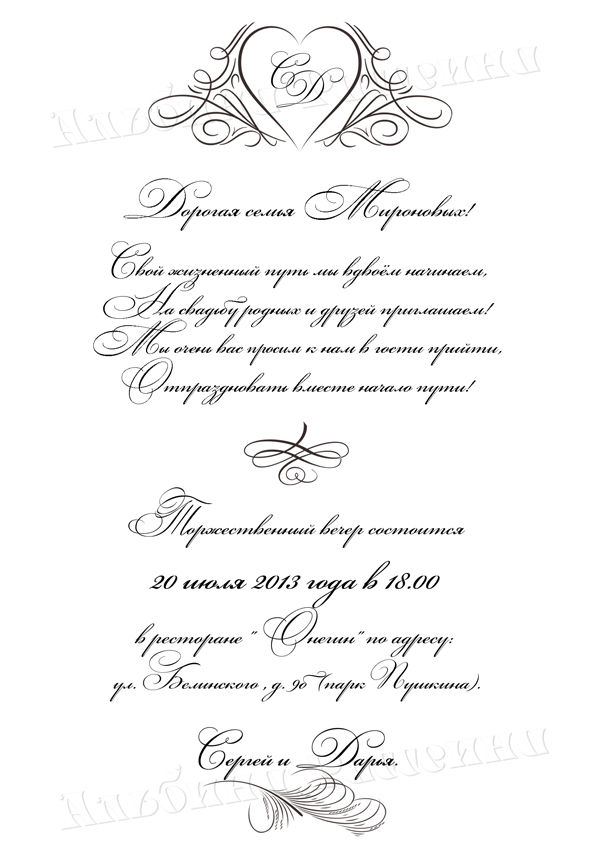 СД
Дорогая семья Мироновых!
Свой жизненный путь мы вдвоём начинаем,
На свадьбу родных и друзей приглашаем!
Мы очень вас просим к нам в гости прийти,
Отпраздновать вместе начало пути!
Торжественный вечер состоится
20 июля 2013 года в 18.00
в ресторане " Онегин" по адресу:
ул. Белинского , д. 9б (парк Пушкина).
Сергей и Дарья.